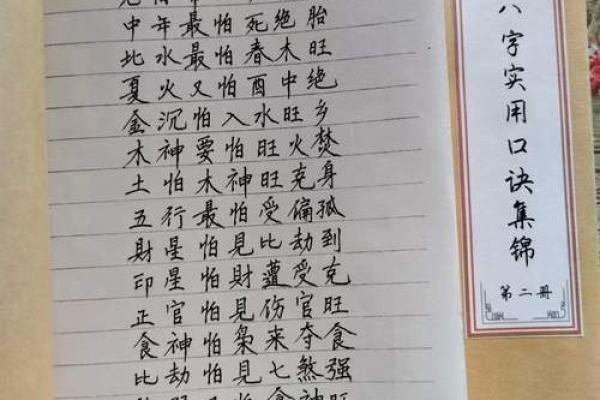 中年最怕死绝胎
北水最怕春木旺
夏火又怕酉中绝
金沉怕入水旺乡
木神要怕旺火焚
土怕木神旺克身
五行最怕受偏孤
財星怕見比劫到
印星怕財遭受克
正官怕見伤官旺
食神怕枭来夺食
比劫怕見七煞强
八字实用口诀集锦
第二册